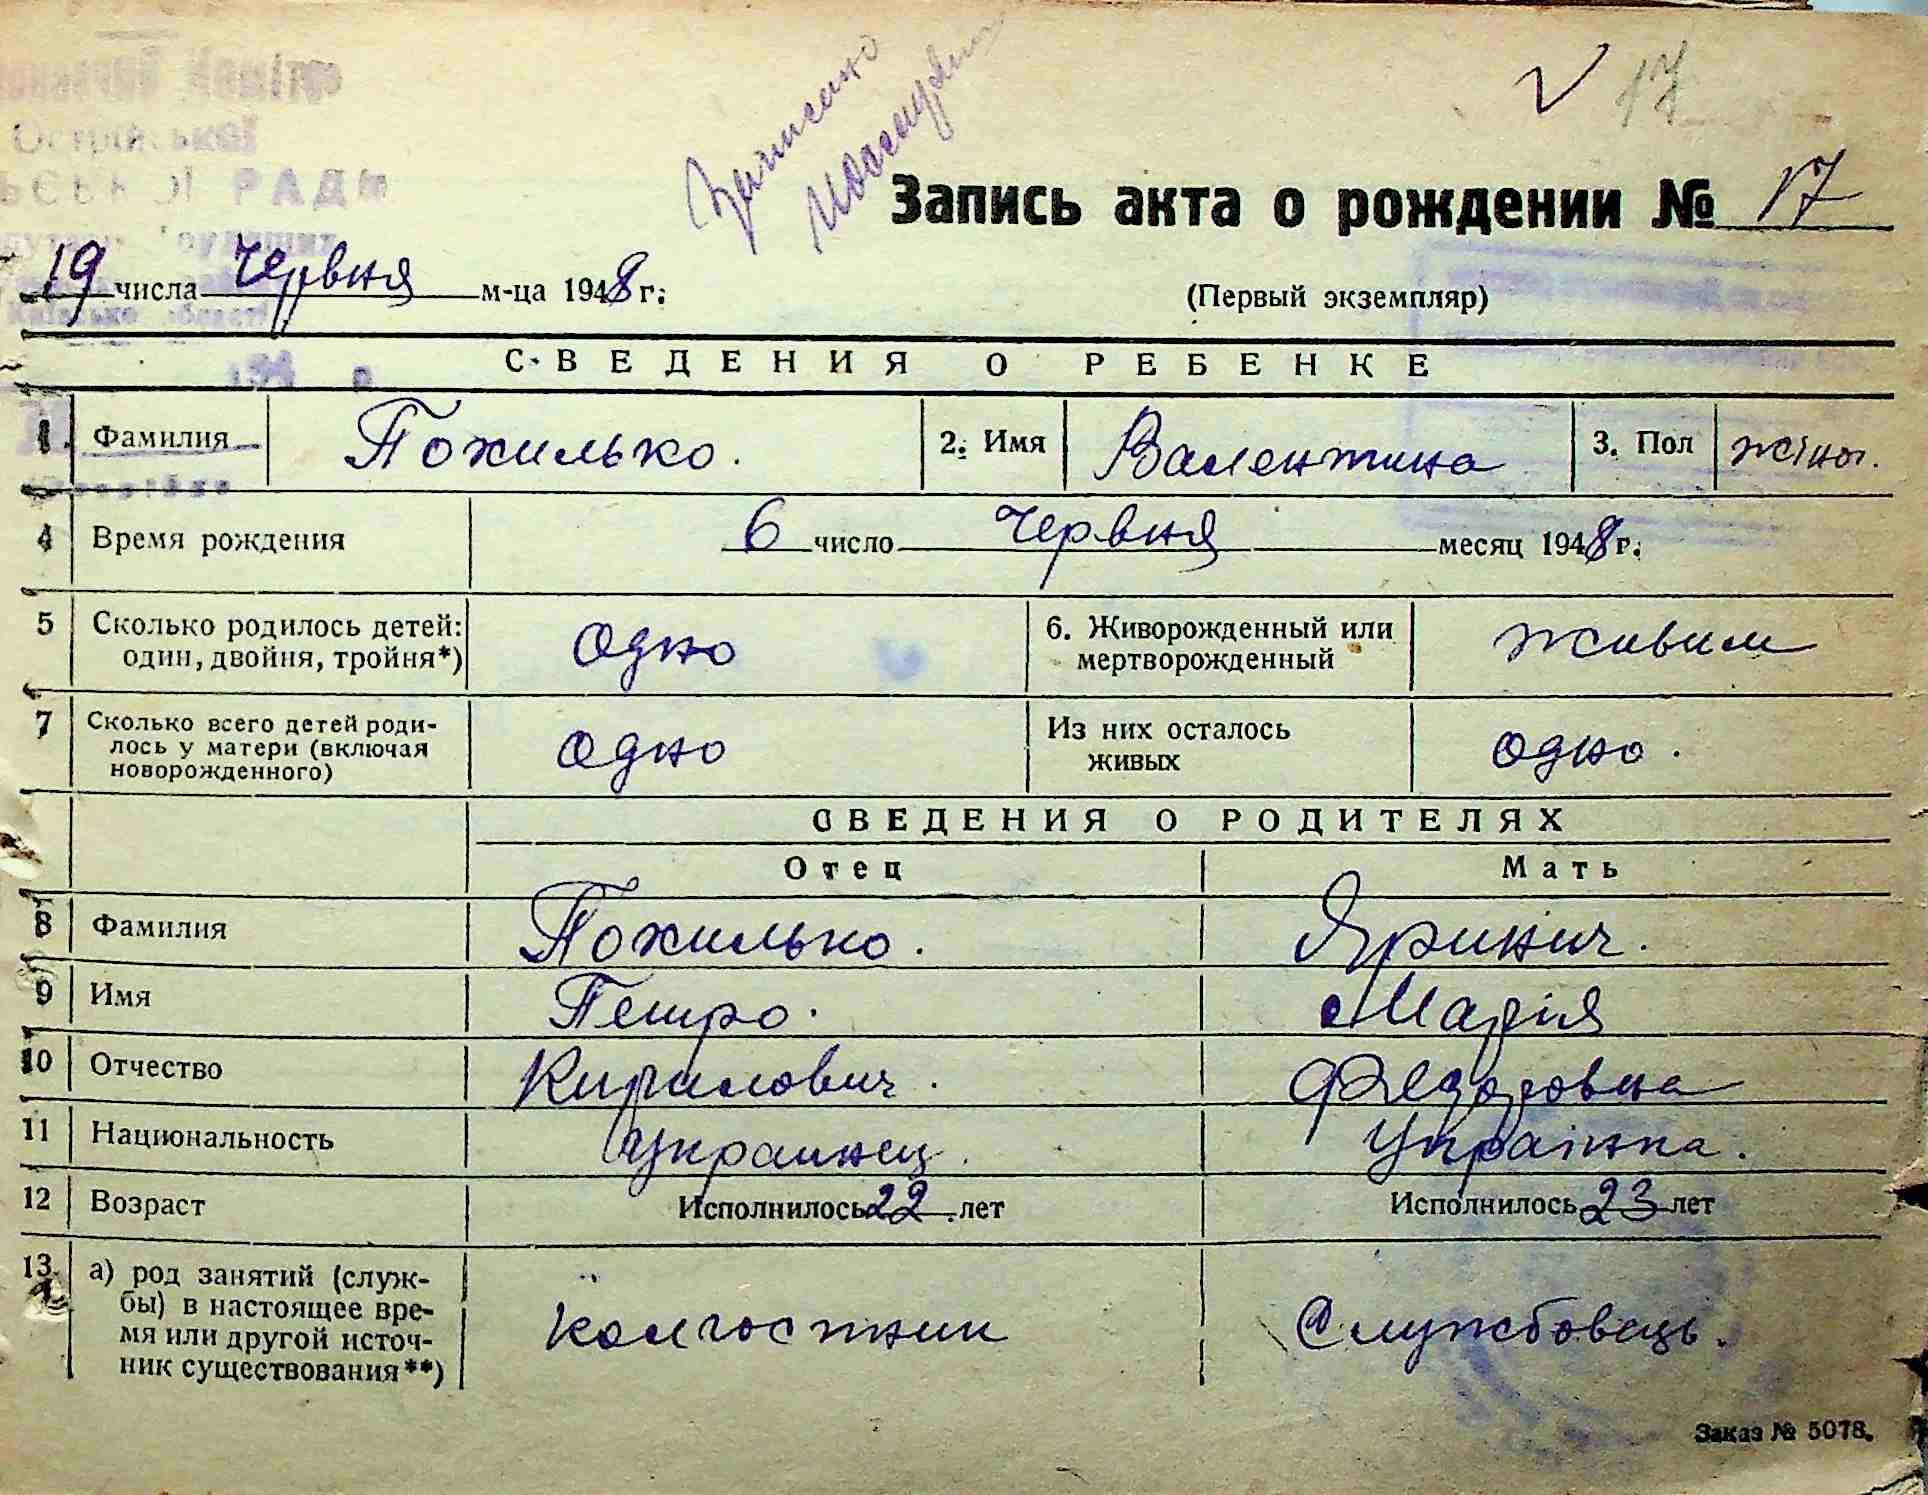 17
Запись акта о рождении № 17
РАДИ
19 числа Червня м-ца 1948 г.
(Первый экземпляр)
СВЕДЕНИЯ О РЕБЕНКЕ
1. Фамилия Пожилько. 2. Имя Валентина 3. Пол жіноч.
4 Время рождения 6 число Червня месяц 1948 г.
5 Сколько родилось детей: один, двойня, тройня*) одно 6. Живорожденный или мертворожденный живим
7 Сколько всего детей родилось у матери (включая новорожденного) одно Из них осталось живых одно.
СВЕДЕНИЯ О РОДИТЕЛЯХ
Отец Мать
8 Фамилия Пожилько. Яринич.
9 Имя Петро. Марія
10 Отчество Кирилович. Федоровна
11 Национальность Украинец. Українка.
12 Возраст Исполнилось 22 лет Исполнилось 23 лет
13. а) род занятий (служ-
бы) в настоящее вре-
мя или другой источ-
ник существования**) колгостник Службовець.
Заказ № 5078.